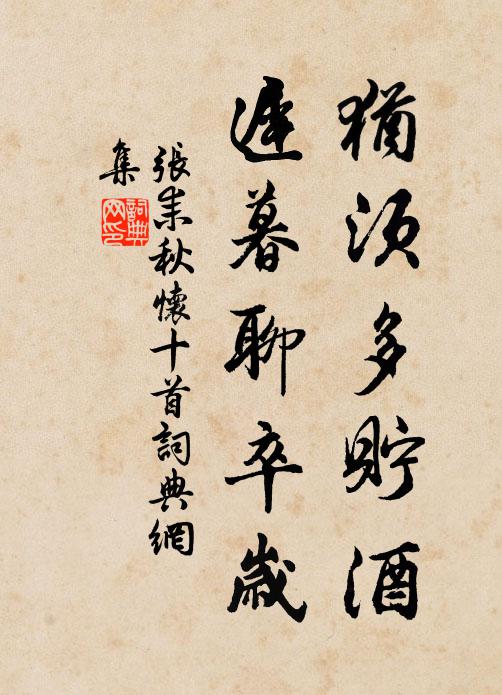 猶須多貯酒
遲暮聊卒歲
張耒秋懷十首詞典網
集
詞典
网印